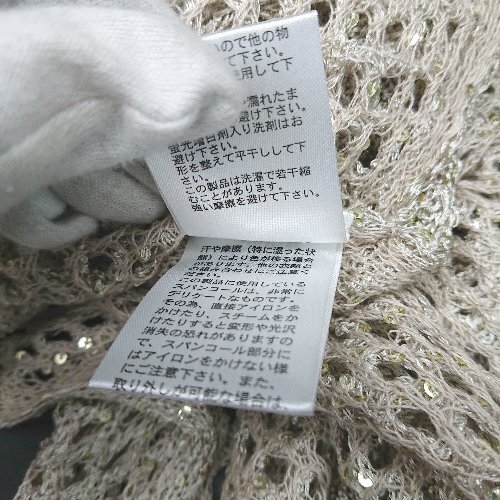 いので他の物
て下さい。
使用して下
濡れたま
避け下さい。
蛍光増白剤入り洗剤はお
避け下さい。
形を整えて平干しして下
さい。
この製品は洗濯で若干縮
むことがあります。
強い摩擦を避けて下さい。
汗や摩擦（特に湿った状
態）により色が移る場合
があります。他の衣類と
の組み合わせにはご注意く
ださい。
この製品に使用している
スパンコールは、非常に
デリケートなものです。
その為、直接アイロンを
かけたり、スチームをか
けたりすると変形や光沢
消失の恐れがありますの
で、スパンコール部分に
はアイロンをかけない様
にご注意下さい。また、
取り外しが可能な場合は、